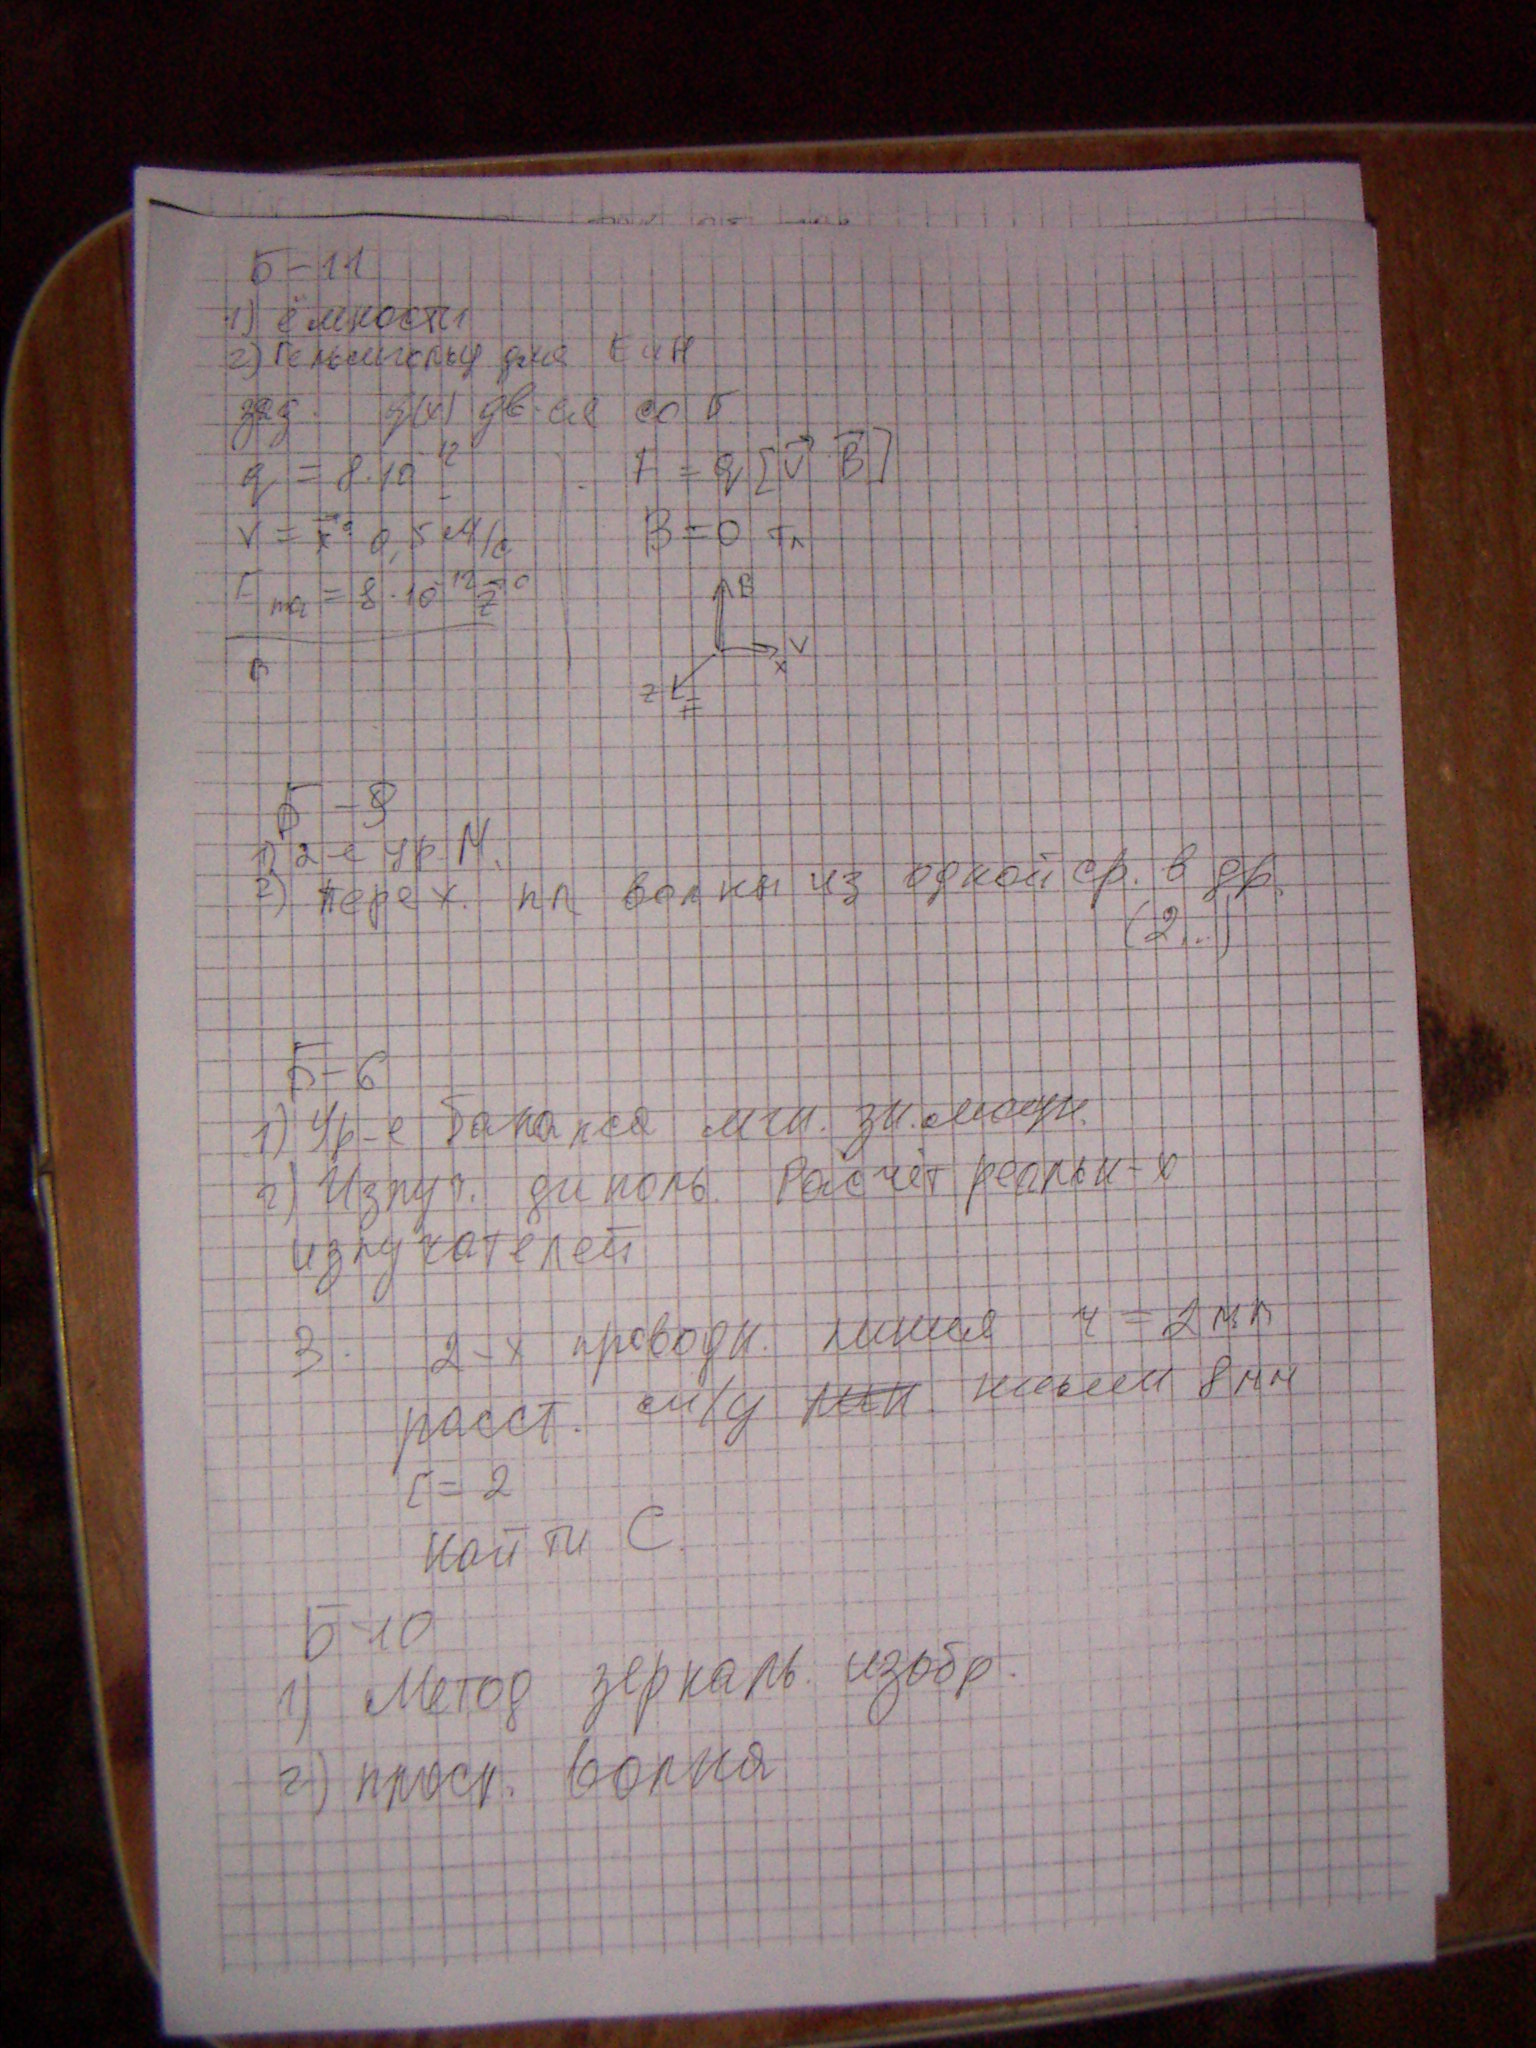 Б-11
1) ёмкости
2) Гельмгольц для E и H
зад. q(x) дв-ся со
q = 8·10⁻¹² F = q[v⃗ B⃗]
v = x⃗⁰ 0,5 м/с B = 0 Тл
F = 8·10⁻¹² z⃗⁰
B
V
x
z
F
Б-9
1) 2-е ур. М.
2) перех. пл волны из одной ср. в др.
(2...)
Б-6
1) Ур-е баланса мгн. зн. мощн.
2) Излуч. диполь. Расчёт реальн-х
излучателей
3. 2-х проводн. линия r = 2 мм
расст. м/д ними 8 мм
ε = 2
Найти C.
Б-10
1) Метод зеркаль. изобр.
2) плоск. волна